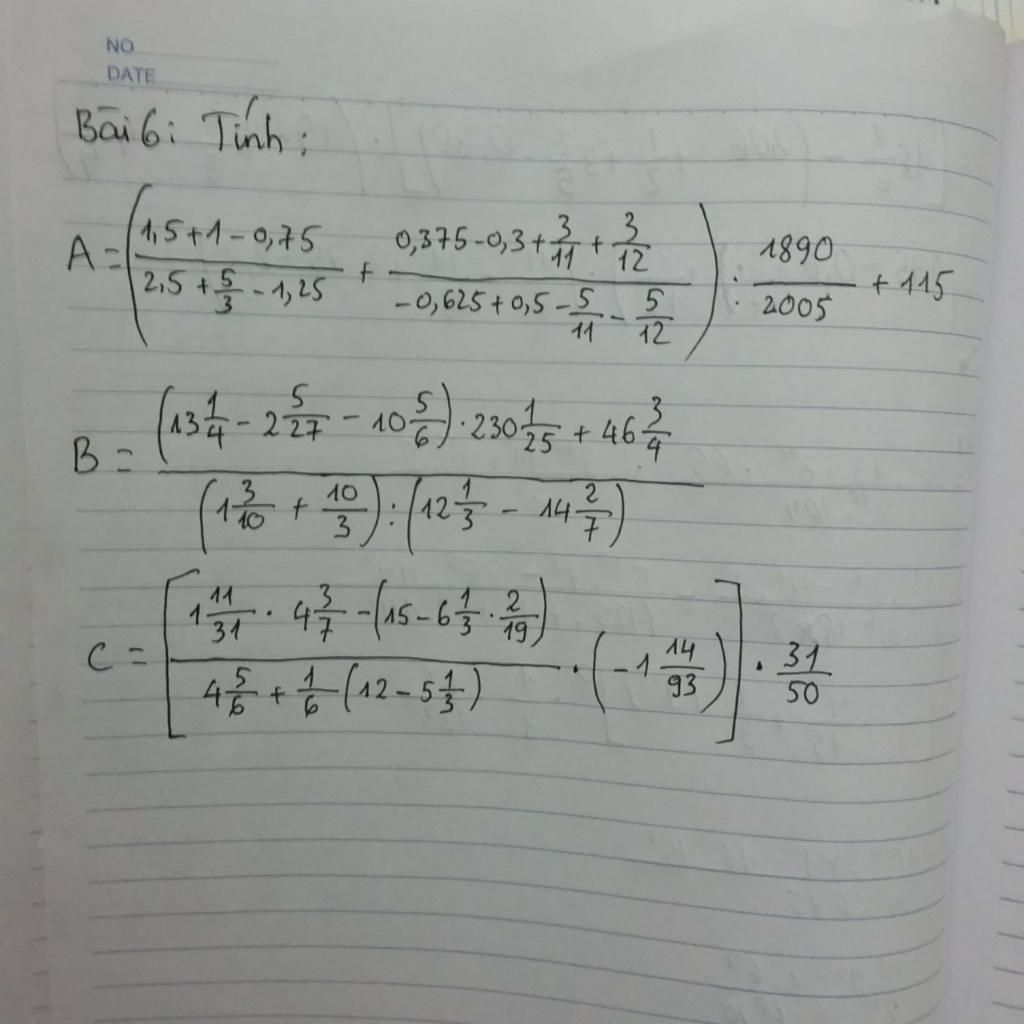 NO
DATE
Bài 6: Tính:
A = ( (1,5 + 1 - 0,75)/(2,5 + 5/3 - 1,25) + (0,375 - 0,3 + 3/11 + 3/12)/(-0,625 + 0,5 - 5/11 - 5/12) ) : 1890/2005 + 115
B = ( (13 1/4 - 2 5/27 - 10 5/6) · 230 1/25 + 46 3/4 ) / ( (1 3/10 + 10/3) : (12 1/3 - 14 2/7) )
C = [ (1 11/31 · 4 3/7 - (15 - 6 1/3 · 2/19)) / (4 5/6 + 1/6 (12 - 5 1/3)) · (-1 14/93) ] · 31/50